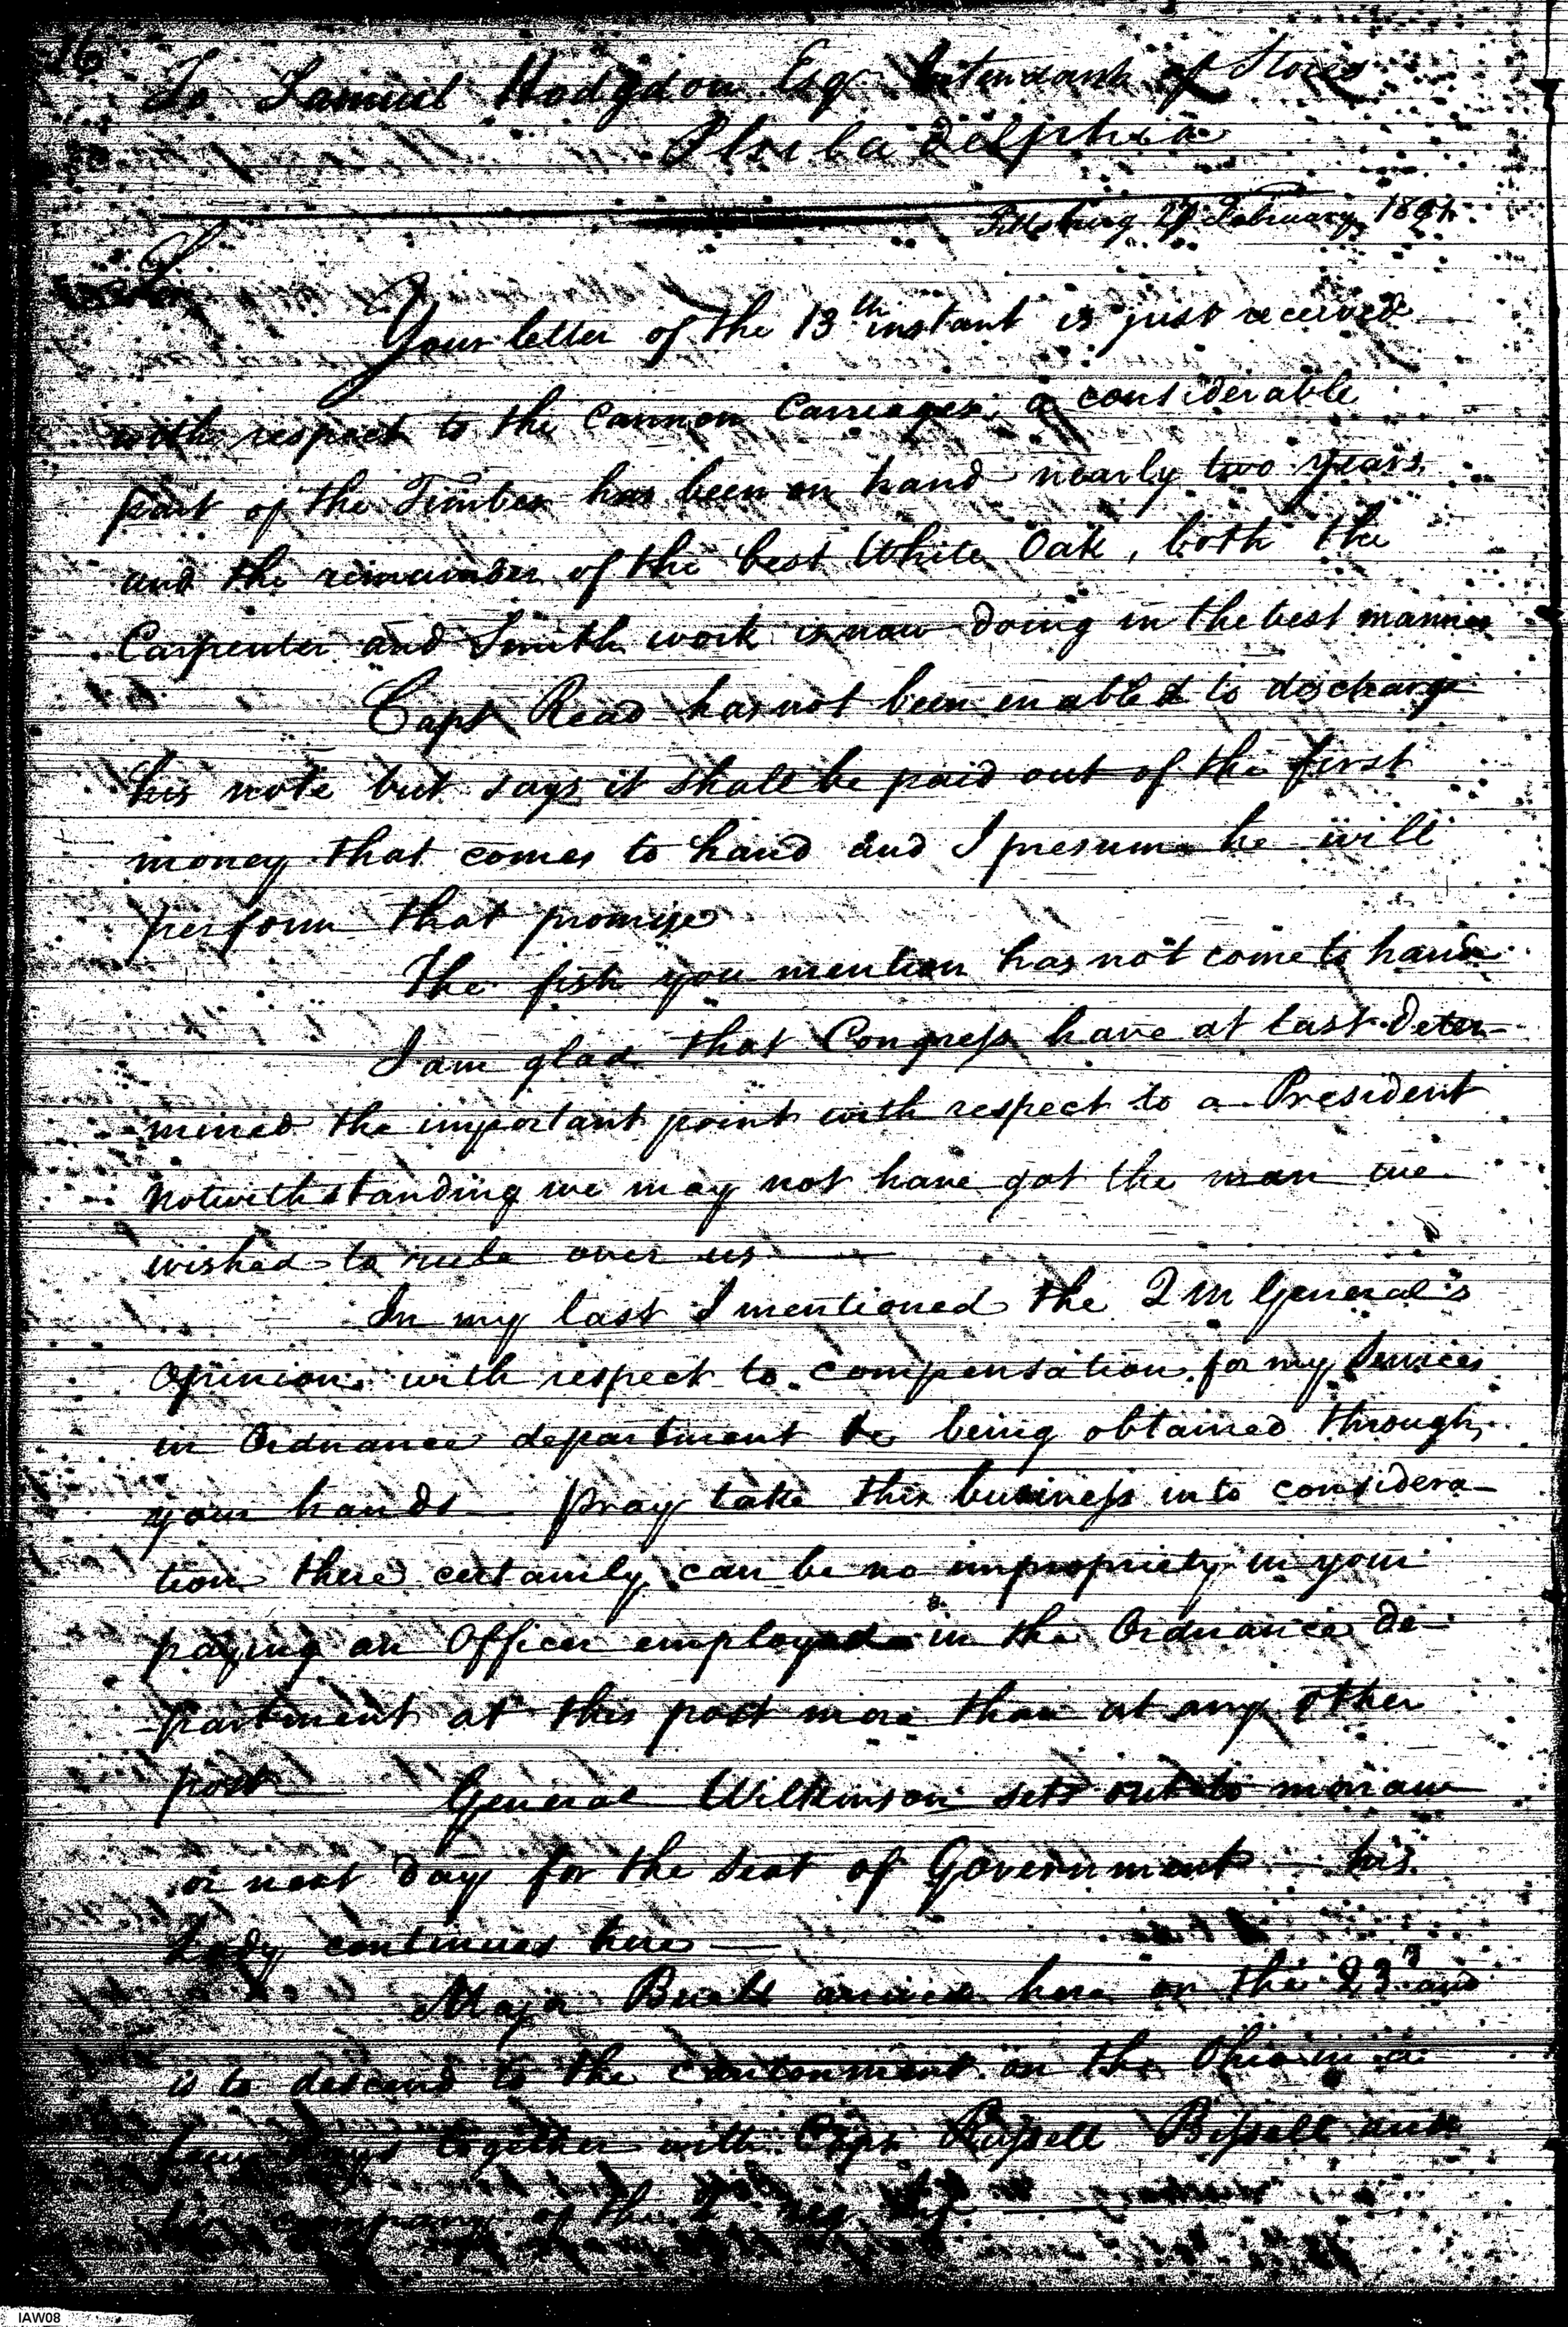 16
To Samuel Hodgdon Esqr Intendant of Stores
Philadelphia
Pittsburg 27 February 1801
Sir
Your letter of the 13th instant is just received
with respect to the Cannon Carriages, a considerable
part of the Timber has been on hand nearly two years
and the remainder of the best White Oak, both the
Carpenter and Smith work is now doing in the best manner
Capt Read has not been enabled to discharge
his note but says it shall be paid out of the first
money that comes to hand and I presume he will
perform that promise
The fish you mention has not come to hand
I am glad that Congress have at last deter-
mined the important point with respect to a President
notwithstanding we may not have got the man we
wished to rule over us
In my last I mentioned the Q M General's
Opinion with respect to compensation for my Services
in Ordnance department being obtained through
your hands – pray take this business into considera-
tion there certainly can be no impropriety in your
paying an Officer employed in the Ordnance de-
partment at this post more than at any other
post General Wilkinson sets out to morrow
or next day for the seat of Government – his
Lady continues here –
Major Buell arrived here on the 23d and
is to descend to the Cantonment on the Ohio in a
few days together with Capt Russell Bissell and
his company of the 2 Reg
IAW08